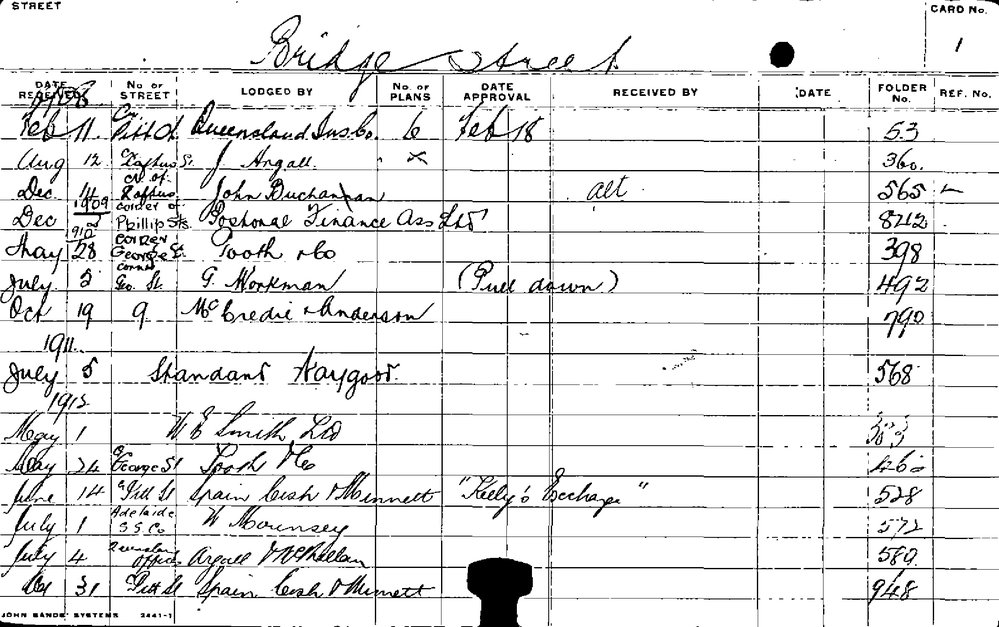 STREET
CARD No.
Bridge Street
1
DATE RECEIVED No. OF STREET LODGED BY No. OF PLANS DATE APPROVAL RECEIVED BY DATE FOLDER No. REF. No.
1908
Feb 11 Cnr Pitt St Queensland Ins Co. 6 Feb 18 53
Aug 12 J. Argall. 360.
Dec 14 cr of John Buchannan alt 565
1909
Dec 2 corner of Phillip Sts Finance Ass Ltd 842
1910
May 28 corner George St Tooth & Co 398
July 2 corner Geo. St. G. Workman (Pull down) 492
Oct 19 9 McCredie & Anderson 790
1911.
July 5 Standard Waygood. 568
1912
May 1 W E Smith Ltd
May 24 George St Tooth & Co 460
June 14 Pitt St Spain Cosh & Minnett "Kelly's Exchange" 528
July 1 Adelaide S.S. Co W Mounsey 572
July 4 Queensland Offices Argall & 580.
Oct 31 Pitt St Spain Cosh & Minnett 948
JOHN SANDS' SYSTEMS 2441-1